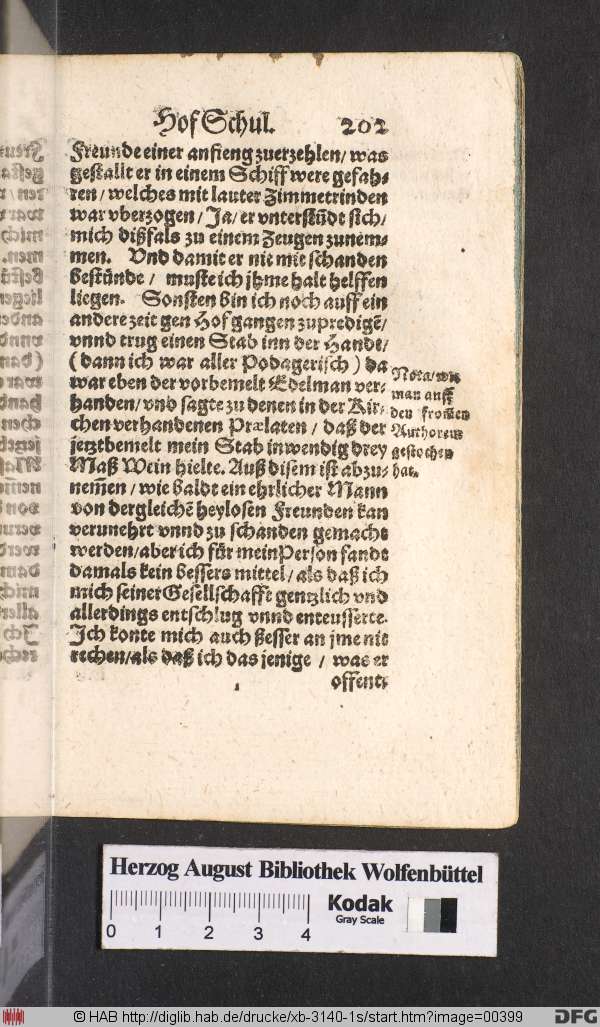 Hof Schul. 202
Freunde einer anfieng zuerzehlen/ was
gestallt er in einem Schiff were gefah⸗
ren/ welches mit lauter Zimmetrinden
war vberzogen/ Ja/ er vnterstũdt sich/
mich dißfals zu einem Zeugen zunem⸗
men. Vnd damit er nie mit schanden
bestünde/ muste ich jhme halt helffen
liegen. Sonsten bin ich noch auff ein
andere zeit gen Hof gangen zupredigẽ/
vnnd trug einen Stab inn der Handt/
(dann ich war aller Podagerisch) da
war eben der vorbemelt Edelman ver⸗
handen/ vnd sagte zu denen in der Kir⸗
chen verhandenen Prælaten/ daß der
jetztbemelt mein Stab inwendig drey
Maß Wein hielte. Auß disem ist abzu⸗
nem̃en/ wie baldt ein ehrlicher Mann
von dergleichẽ heylosen Freunden kan
verunehrt vnnd zu schanden gemacht
werden/ aber ich für mein Person fandt
damals kein bessers mittel/ als daß ich
mich seiner Gesellschafft gentzlich vnd
allerdings entschlug vnnd enteusserte.
Ich konte mich auch besser an jme nit
rechen/ als daß ich das jenige/ was er
offent⸗
Nota/ wie
man auff
den from̃en
Authorem
gestochen
hat.
Herzog August Bibliothek Wolfenbüttel
0 1 2 3 4
Kodak
Gray Scale
© HAB http://diglib.hab.de/drucke/xb-3140-1s/start.htm?image=00399
DFG